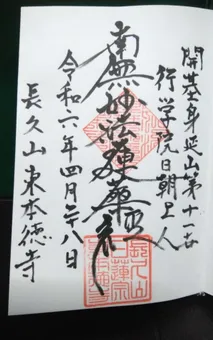 開基身延山第十一世
行学院日朝上人
南無妙法蓮華経
令和六年四月廿八日
長久山東本徳寺